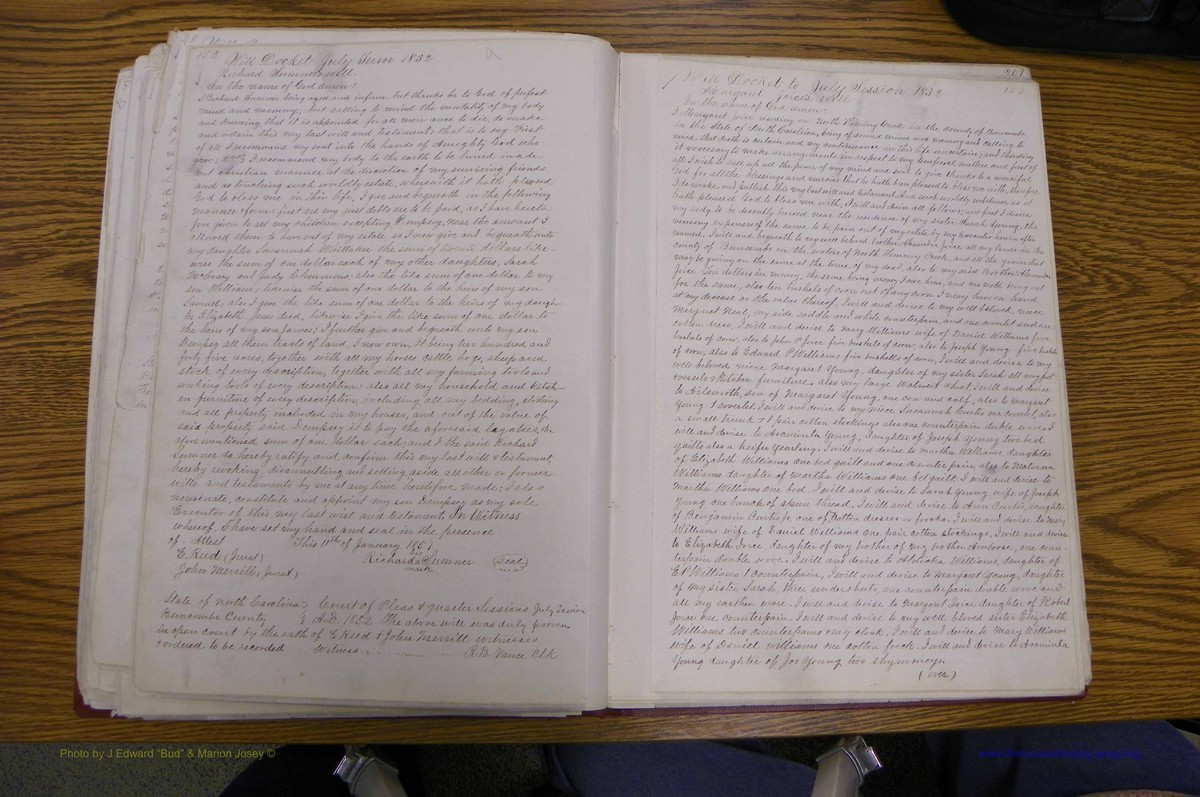 152 Will Docket July Term 1852
Richard Sumner will
In the name of God amen!
I Richard Sumner being aged and infirm, but thanks be to God of perfect
mind and memory, but calling to mind the mortality of my body
and knowing that it is appointed for all men once to die, do make
and ordain this my last will and testament; that is to say First
of all I recommend my soul into the hands of Almighty God who
gave; I recommend my body to the earth to be buried in a de
cent christian manner at the discretion of my surviving friends
and as touching such worldly estate, wherewith it hath pleased
God to bless me in this life, I give and bequeath in the following
manner & form: first all my just debts are to be paid, as I have hereto
fore given to all my children excepting Dempsey, near the amount I
allowed them to have out of my estate so I now give and bequeath unto
my daughter Susannah Whittaker the sum of twenty dollars like
wise the sum of one dollar each of my other daughters, Sarah
McCray and Judy Clemmons; also the like sum of one dollar to my
son William, likewise the sum of one dollar to the heirs of my son
Samuel; also I give the like sum of one dollar to the heirs of my daugh
ter Elizabeth Ines deed, likewise I give the like sum of one dollar to
the heirs of my son James; I further give and bequeath unto my son
Dempsy all them tracts of land I now own, it being two hundred and
forty five acres, together with all my horses cattle hogs, sheep and
stock of every description, together with all my farming tools and
working tools of every description: also all my household and kitch-
en furniture of every description, including all my bedding, clothing
and all property included in my houses, and out of the value of
said property said Dempsey is to pay the aforesaid legatees, the
afore mentioned sum of one dollar each; and I the said Richard
Sumner do hereby ratify and confirm this my last will & testament,
hereby revoking, disannulling and setting aside all other or former
wills and testaments by me at any time heretofore made; I also
nominate, constitute and appoint my son Dempsey as my sole
Executor of this my last will and testament. In Witness
whereof I have set my hand and seal in the presence
of - Attest This 11th of January 1851
E. Reed (Jurat) Richard Sumner (Seal)
mark
John Merrill (Jurat)
State of North Carolina } Court of Pleas & Quarter Sessions July Session
Buncombe County } A.D. 1852 The above will was duly proven
in open court by the oath of E Reed & John Merrill witnesses
& ordered to be recorded Witness R.B. Vance Clk
Will Docket to July Session 1852 153
Margaret Joice will
In the name of God amen!
I Margaret Joice residing on North Hominy Creek in the county of Buncombe
in the State of North Carolina, being of sound mind and memory and calling to
mind that death is certain and my continuance in this life uncertain; and thinking
it necessary to make arrangements in respect to my temporal matters and first of
all I wish to call up all the powers of my mind and soul to give thanks to a merciful
God for all the blessings and mercies that he hath been pleased to bless me with, therefore
I do make and publish this my last will and testament and such worldly substance as it
hath pleased God to bless me with, I will and devise as follows; and first I desire
my body to be decently buried near the residence of my sister Sarah Young, the
necessary expenses of the same, to be paid out of my estate by my executor herein after
named, I will and bequeath to my well beloved brother
county of Buncombe on the waters of North Hominy Creek, and all the
may be giving on the same at the time of my
Joice Ten dollars in money, the same being money I loan him, and no note being out
for the same, also ten bushels of corn out of any corn I may have on hand
at my decease or the value thereof, I will and devise to my well beloved niece
Margaret Neal, my side saddle and white counterpain, and one coverlet and one
cotton dress, I will and devise to Mary Williams wife of Daniel Williams five
bushels of corn, also to John P Joice five bushels of corn; also to Joseph Young five bushels
of corn, also to Edward P Williams five bushells of corn, I will and devise to my
well beloved niece Margaret Young, daughter of my sister Sarah all my pot
vessels & kitchen furniture, also my large Walnut chest I will and devise
to Ailsworth, son of Margaret Young, one cow and calf, also to margaret
Young 1 coverlet. I will and devise to my niece Susannah also
a small trunk & 1 pair cotton stockings also one counterpain double wove. I
will and devise to Araminta Young, daughter of Joseph Young two bed
quilts also a heifer yearling. I will and devise to martha Williams, daughter
of Elizabeth Williams one bed quilt and one counterpain, also to Malvina
Williams daughter of martha Williams one bed quilt. I will and devise to
Martha Williams one bed. I will and devise to Sarah Young, wife of Joseph
Young one bunch of spun thread, I will and devise to Ann daughter
of Benjamin one of Cotton dresses or frocks. I will and devise to Mary
Williams wife of Daniel Williams one pair cotton stockings. I will and devise
to Elizabeth Joice, daughter of my brother of my brother Ambrose, one coun-
terpain double wove. I will and devise to Williams, daughter of
E P Williams 1 counterpain, I will and devise to margaret Young, daughter
of my sister Sarah, three under beds, one counterpain double wove and
all my earthen ware. I will and devise to margaret Joice daughter of Robert
Joice one counterpain. I will and devise to my well beloved sister Elizabeth
Williams two counterpains & my cloak, I will and devise to Mary Williams
wife of Daniel Williams one cotton frock. I will and devise to Araminta
Young daughter of Jos Young two
(over)
Photo by J Edward "Bud" & Marion Josey ©